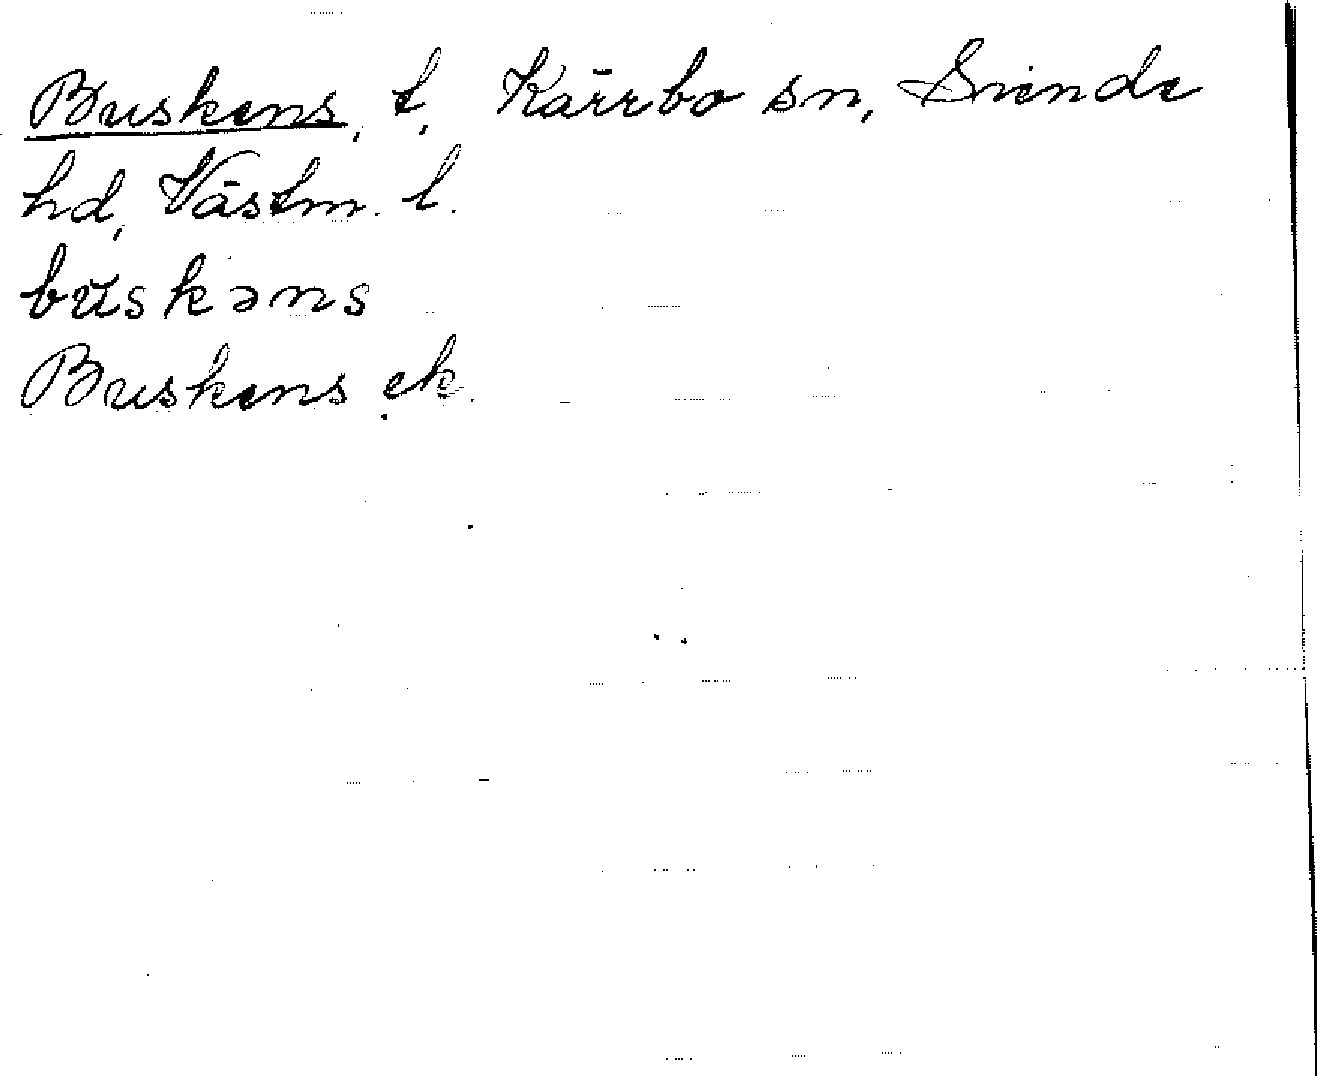 Buskens, t, Kärrbo sn, Siende
hd, Västm. l.
bŭskəns
Buskens ek.